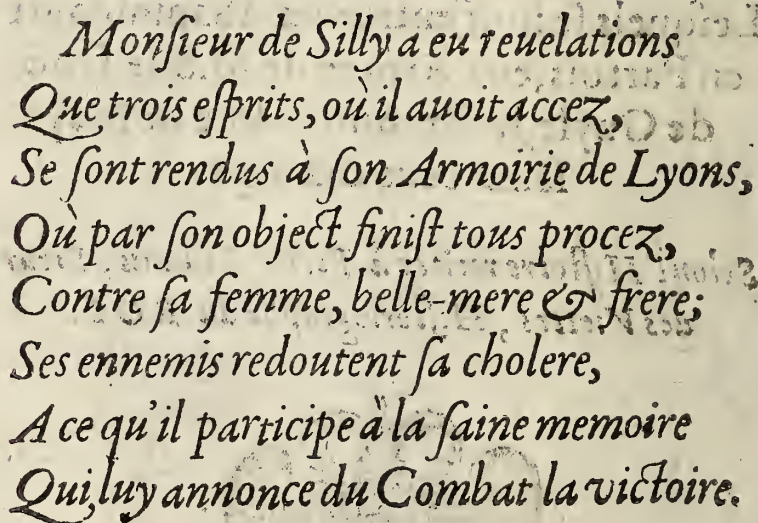 Monſieur de Silly a eu reuelations
Que trois eſprits, où il auoit accez,
Se ſont rendus à ſon Armoirie de Lyons,
Où par ſon object finiſt tous procez,
Contre ſa femme, belle-mere & frere;
Ses ennemis redoutent ſa cholere,
A ce qu'il participe à la ſaine memoire
Qui, luy annonce du Combat la victoire.